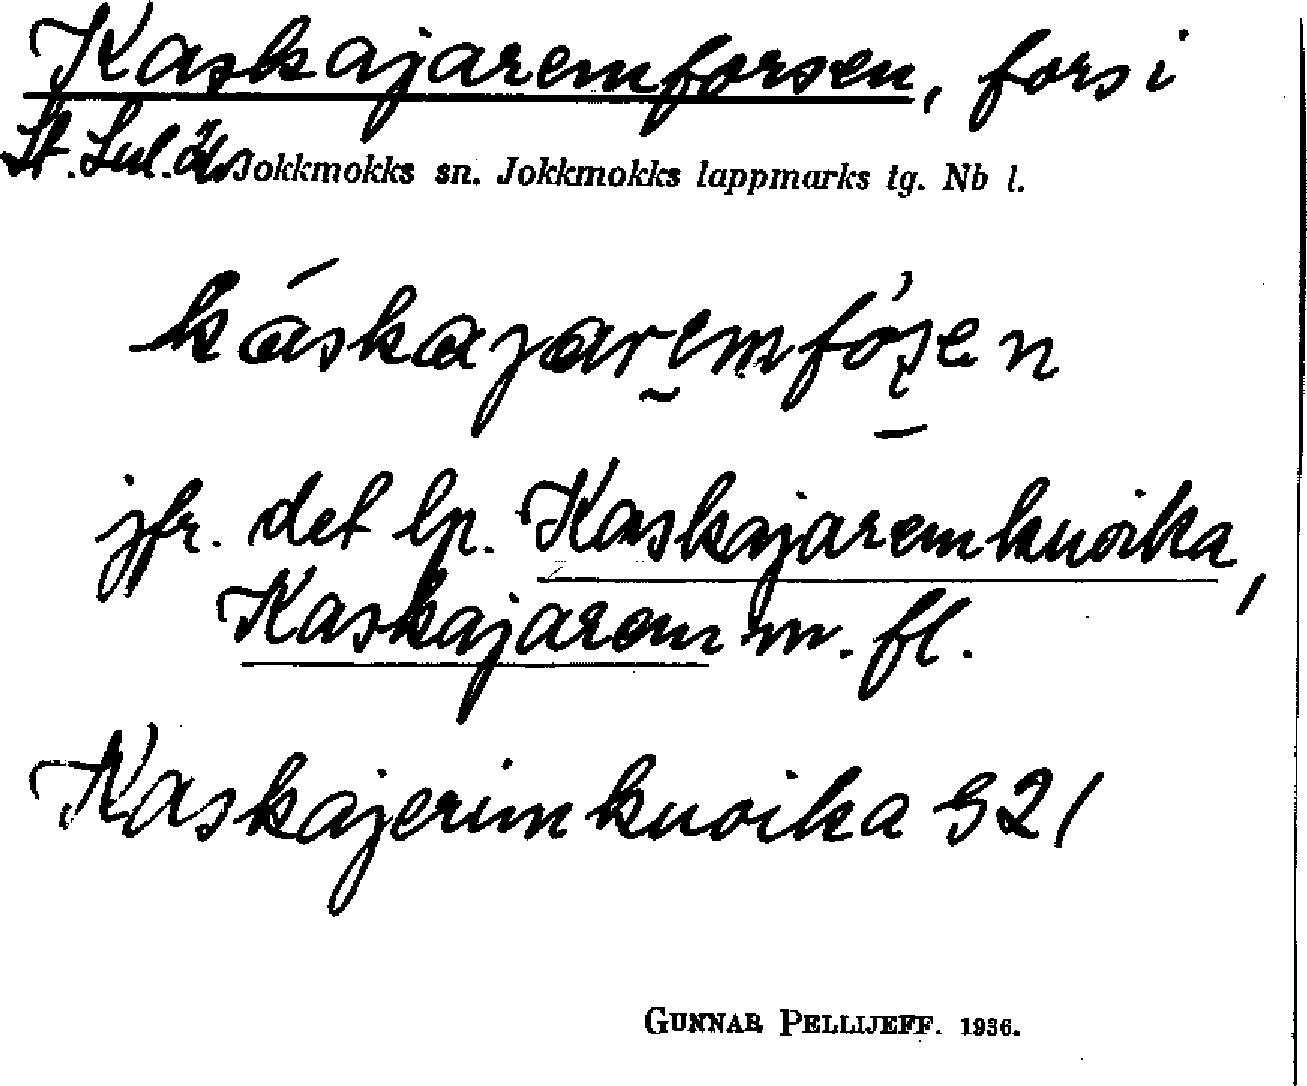 Kaskajaremforsen, fors i
St. Lul. älv Jokkmokks sn. Jokkmokks lappmarks tg. Nb l.
káskajaremfó̀ʂen
jfr. det lp. Kaskajaremkuoika,
Kaskajarem m. fl.
Kaskajerimkuoika S21
GUNNAR PELLIJEFF. 1936.